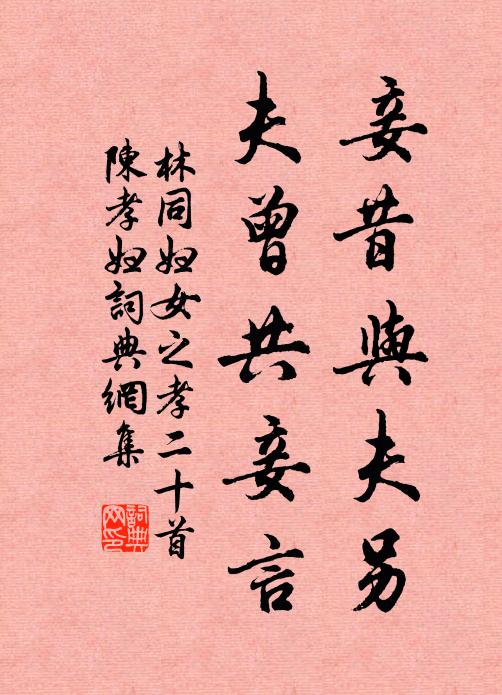 妾昔與夫另
夫曾共妾言
林同婦女之孝二十首
陳孝婦詞典網集
詞典網印